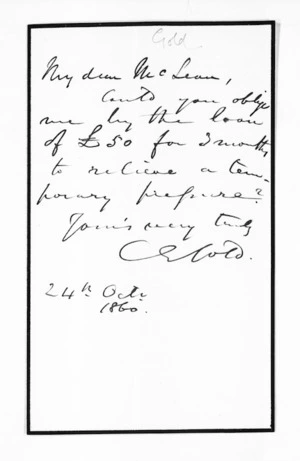 Gold
My dear McLean,
Could you oblige
me by the loan
of £50 for 3 months
to relieve a tem-
porary pressure?
Yours very truly
C Gold.
24th Octr
1860.